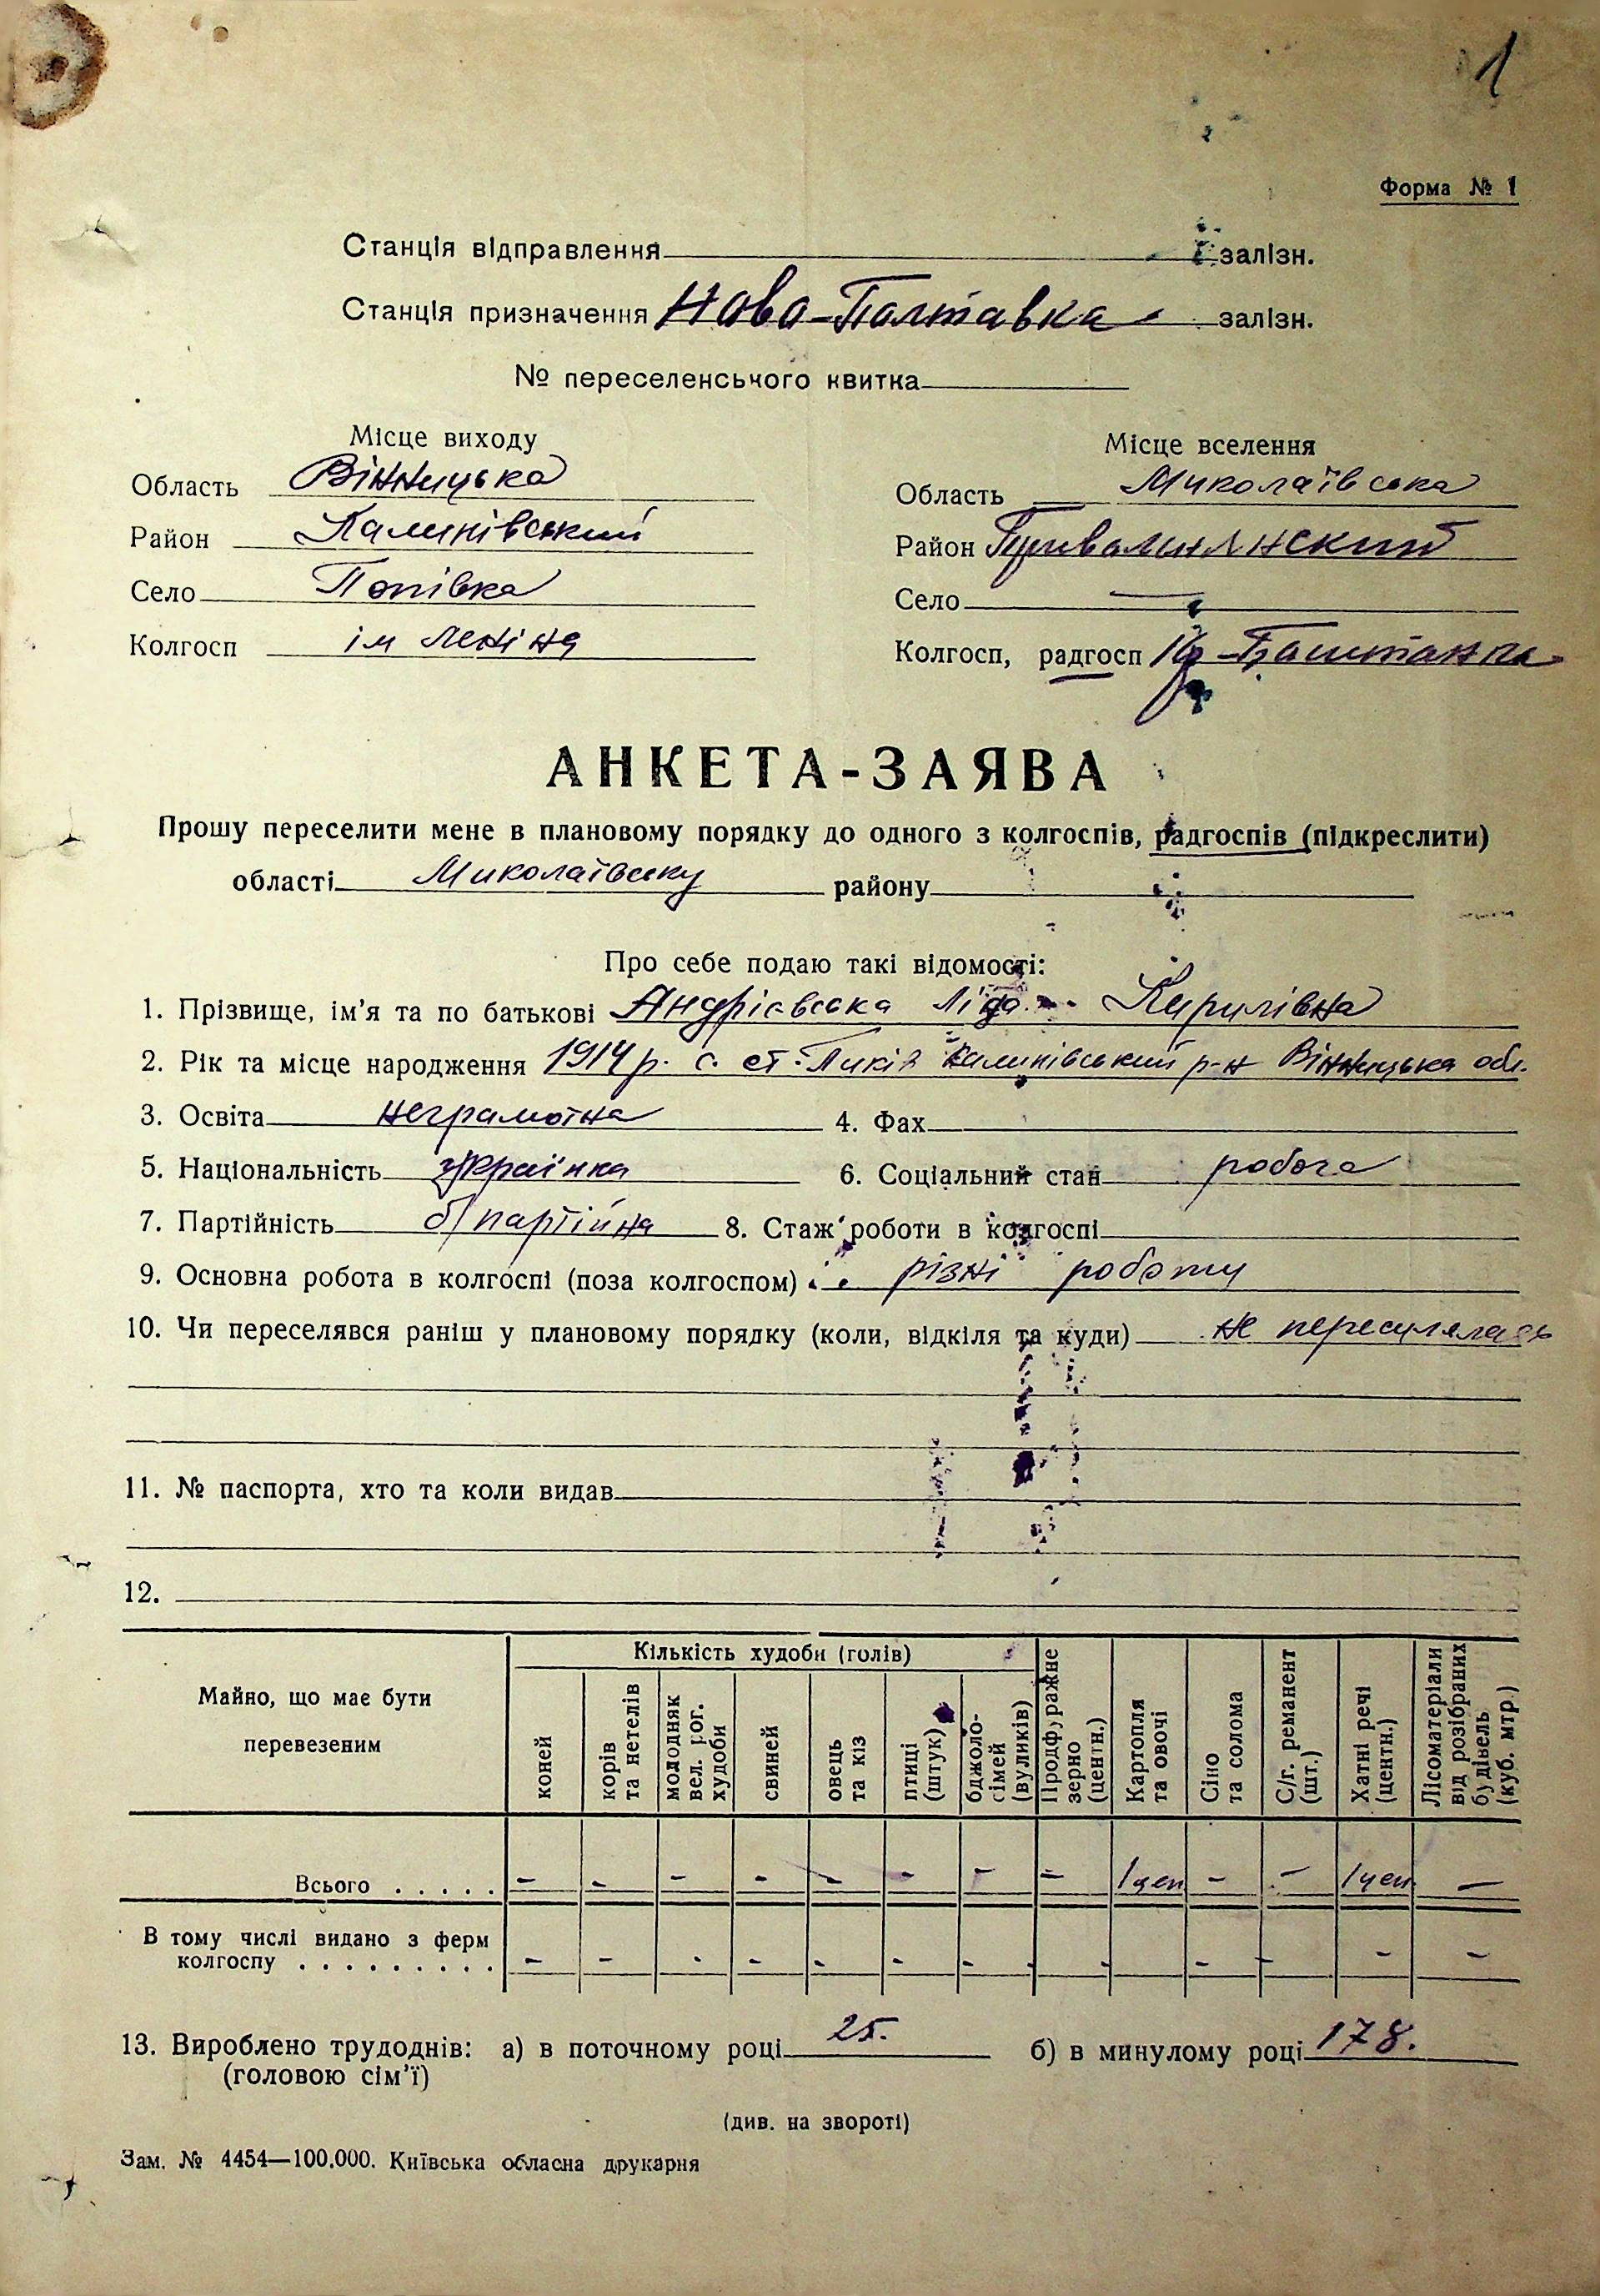 1
Форма № 1
Станція відправлення залізн.
Станція призначення Ново-Полтавка залізн.
№ переселенського квитка
Місце виходу
Область Вінницька
Район Калинівський
Село Попівка
Колгосп ім Леніна
Місце вселення
Область Миколаївська
Район
Село —
Колгосп, радгосп -Баштанка
АНКЕТА-ЗАЯВА
Прошу переселити мене в плановому порядку до одного з колгоспів, радгоспів (підкреслити)
області Миколаївську району
Про себе подаю такі відомості:
1. Прізвище, ім'я та по батькові Андрієвська Ліда Кирилівна
2. Рік та місце народження 1914 р. с. ст. Пиків Калинівський р-н Вінницька обл.
3. Освіта неграмотна 4. Фах
5. Національність українка 6. Соціальний стан робоча
7. Партійність б/партійна 8. Стаж роботи в колгоспі
9. Основна робота в колгоспі (поза колгоспом) різні роботи
10. Чи переселявся раніш у плановому порядку (коли, відкіля та куди) не переселялась
11. № паспорта, хто та коли видав
12.
Майно, що має бути перевезеним
Кількість худоби (голів)
коней
корів та нетелів
молодняк вел. рог. худоби
свиней
овець та кіз
птиці (штук)
бджоло-сімей (вуликів)
Продфуражне зерно (центн.)
Картопля та овочі
Сіно та солома
С/г. реманент (шт.)
Хатні речі (центн.)
Лісоматеріали від розібраних будівель (куб. мтр.)
Всього . . . . . - - - - - - - - 1 цен - - 1 цен -
В тому числі видано з ферм
колгоспу . . . . . . . . . - - - - - - - - - - -
13. Вироблено трудоднів: а) в поточному році 25. б) в минулому році 178.
(головою сім'ї)
(див. на звороті)
Зам. № 4454—100.000. Київська обласна друкарня